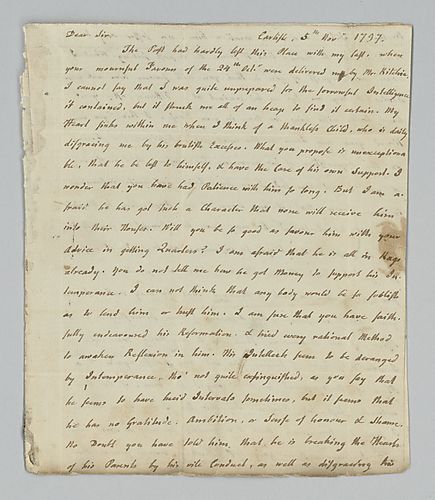 Dear Sir. Carlisle 5th Nov 1797.
The Post had hardly left this Place with my last, when
your mournful Favour of the 24th Octr were delivered me by Mr.
I cannot say that I was quite unprepared for the sorrowful Intelligence
it contained, but it struck me all of an heap to find it certain. My
Heart sinks within me when I think of a thankless Child, who is daily
disgracing me by his brutish Excesses. What you propose is unexceptiona
ble, that he be left to himself, & have the Care of his own Support. I
wonder that you have had Patience with him so long. But I am a-
fraid he has got such a Character that none will receive him
into their Houses. Will you be so good as favour him with your
advice in getting Quarters? I am afraid that he is all in Rags
already. You do not tell me how he got Money to support his In-
temperance. I can not think that any body would be so foolish
as to lend him or trust him. I am sure that you have faith-
fully endeavoured his Reformation & tried every rational Method
to awaken Reflexion in him. His Intellects seem to be deranged
by Intemperance, tho' not quite extinguished, as you say that
he seems to have lucid Intervals sometimes, but it seems that
he has no Gratitude, Ambition, a Sense of honour & Shame.
No Doubt you have told him, that he is breaking the Hearts
of his Parents by his vile Conduct, as well as disgracing his